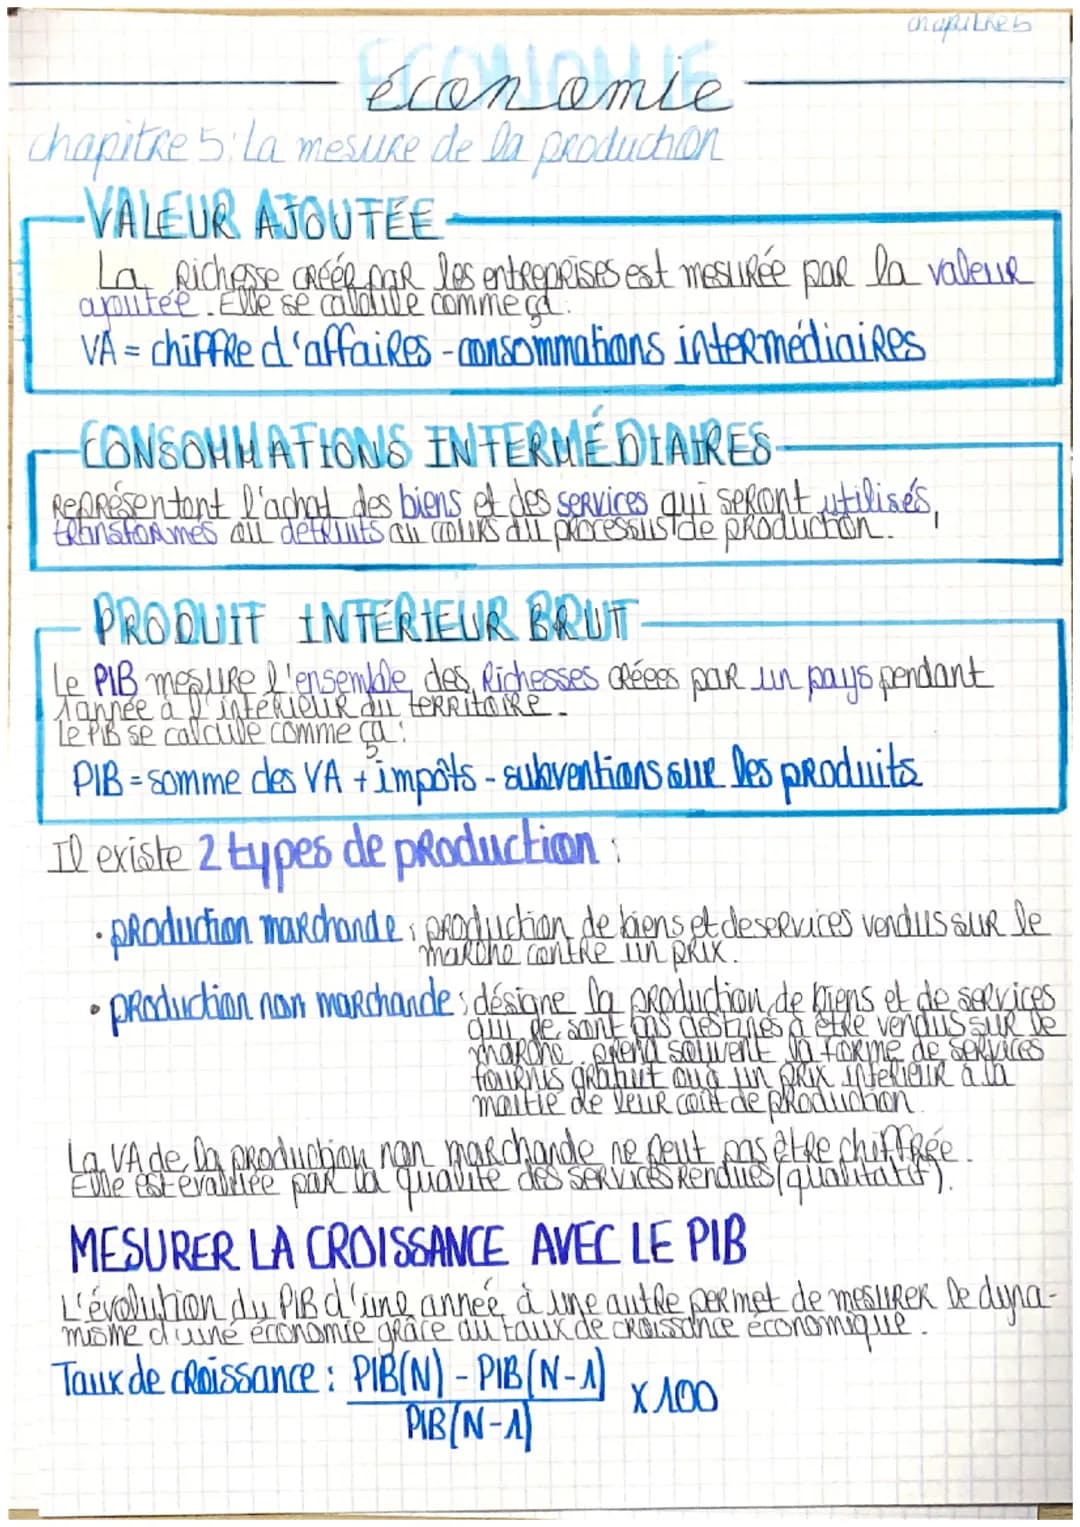 chapitre 5
ÉCONOMIE
économie
chapitre 5 : La mesure de la production
VALEUR AJOUTÉE
La richesse créée par les entreprises est mesurée par la valeur
ajoutée. Elle se calcule comme ça :
VA = chiffre d'affaires - consommations intermédiaires
CONSOMMATIONS INTERMÉDIAIRES
Représentant l'achat des biens et des services qui seront utilisés,
transformés ou détruits au cours du processus de production.
PRODUIT INTÉRIEUR BRUT
Le PIB mesure l'ensemble des richesses créées par un pays pendant
1 année à l'intérieur du territoire.
Le PIB se calcule comme ça :
PIB = somme des VA + impôts - subventions sur les produits
Il existe 2 types de production :
• production marchande : production de biens et de services vendus sur le
marché contre un prix.
• production non marchande : désigne la production de biens et de services
qui ne sont pas destinés à être vendus sur le
marché. prend souvent la forme de services
fournis gratuit ou à un prix inférieur à la
moitié de leur coût de production
La VA de la production non marchande ne peut pas être chiffrée.
Elle est évaluée par la qualité des services rendues (qualitatif).
MESURER LA CROISSANCE AVEC LE PIB
L'évolution du PIB d'une année à une autre permet de mesurer le dyna-
misme d'une économie grâce au taux de croissance économique.
Taux de croissance : PIB(N) - PIB(N-1)
x 100
PIB(N-1)